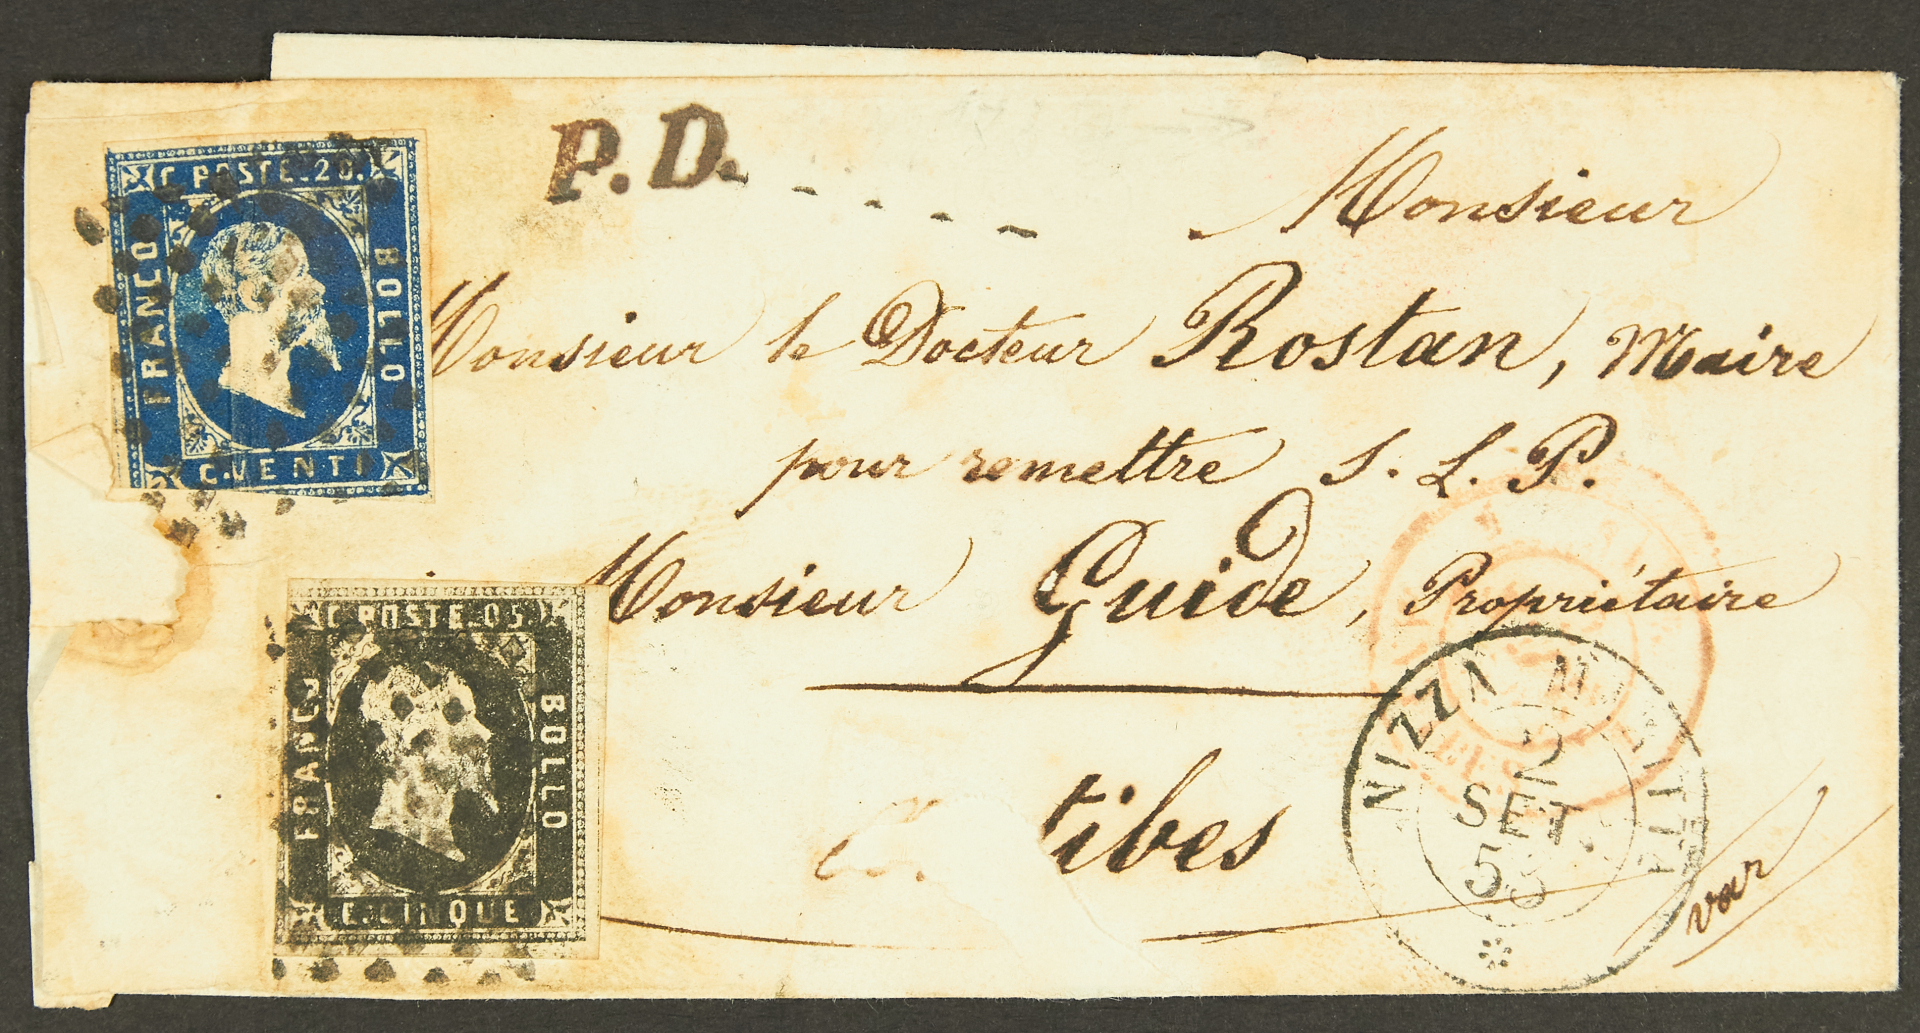 P.D.
C. POSTE. 20.
FRANCO
BOLLO
C. VENTI
Monsieur
Monsieur le Docteur Rostan, Maire
pour remettre S. L. P.
Monsieur Guide, Propriétaire
tibes
C. POSTE. 05.
FRANCO
BOLLO
C. CINQUE
NIZZA MARITTA
2
SET
53
var